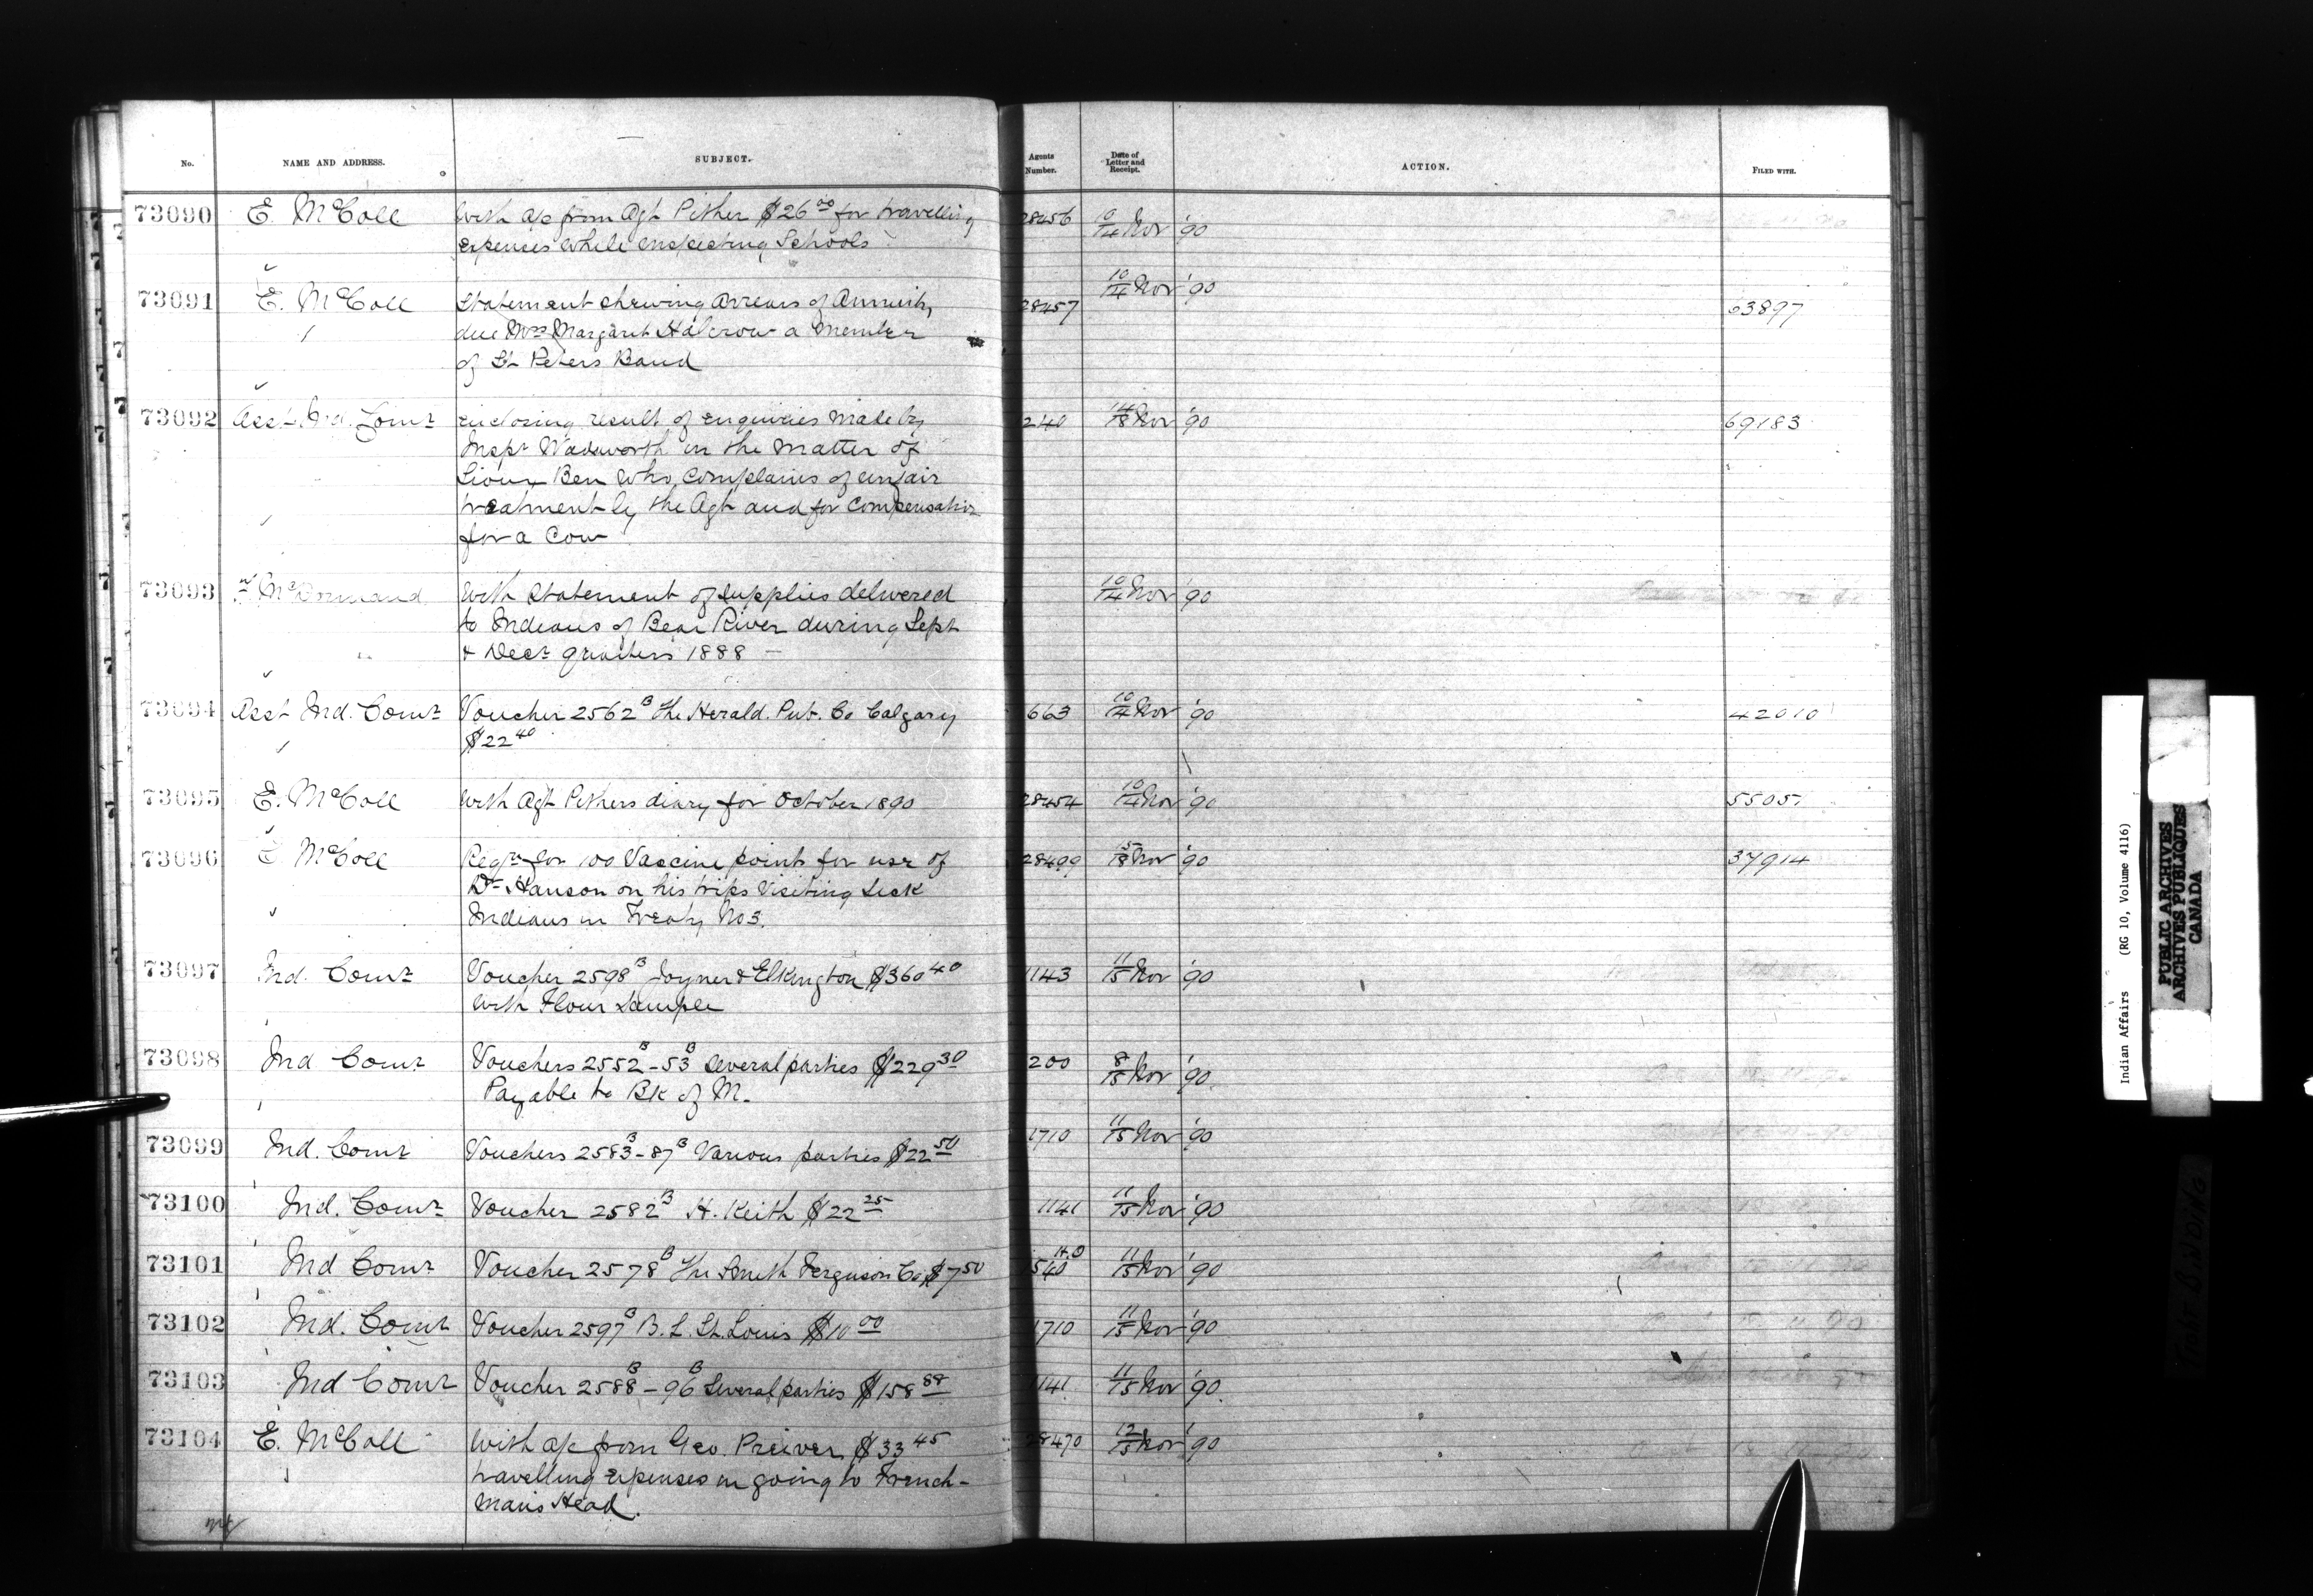 No. NAME AND ADDRESS. SUBJECT. Agents Number. Date of Letter and Receipt. ACTION. FILED WITH.
73090 E. McColl With a/c from Agt Pither $26.00 for travelling 28456 10/14 Nov '90
expenses while inspecting Schools
73091 E. McColl Statement shewing arrears of Annuity 28457 10/14 Nov '90 63897
due Mrs Margaret Halcrow a Member
of St Peters Band
73092 Asst Ind. Comr enclosing result of enquiries made by 240 14/18 Nov '90 69183
Inspr Wadsworth in the matter of
Sioux Ben who complains of unfair
treatment by the Agt and for Compensation
for a Cow
73093 McDormand With Statement of supplies delivered 10/14 Nov '90
to Indians of Bear River during Sept
& Decr quarters 1888 —
73094 Asst Ind. Comr Voucher 2562B The Herald. Pub. Co Calgary 663 10/14 Nov '90 42010
$22 40
73095 E. McColl With Agt Pithers diary for October 1890 28454 10/14 Nov '90 55051
73096 E. McColl Reqn for 100 Vaccine points for use of 28499 15/18 Nov '90 37914
Dr Hanson on his trips Visiting Sick
Indians in Treaty No 3.
73097 Ind. Comr Voucher 2598B Joyner & Elkington $360 40 1143 11/15 Nov '90
with Flour Sample
73098 Ind Comr Vouchers 2552B-53B Several parties $229 30 200 8/15 Nov '90
Payable to Bk of M.
73099 Ind. Comr Vouchers 2583B-87B Various parties $22 50 1710 11/15 Nov '90
73100 Ind. Comr Voucher 2582B H. Keith $22 25 1141 11/15 Nov '90
73101 Ind Comr Voucher 2578B The Smith Ferguson Co $7 50 540 11/15 Nov '90
73102 Ind. Comr Voucher 2597B B. L. St. Louis $10 00 1710 11/15 Nov '90
73103 Ind Comr Voucher 2588B-96B Several parties $158 88 1141 11/15 Nov '90
73104 E. McColl With a/c from Geo. Preiver $33 45 28470 12/15 Nov '90
travelling expenses in going to French-
mans Head.
Indian Affairs (RG 10, Volume 4116)
PUBLIC ARCHIVES
ARCHIVES PUBLIQUES
CANADA
TIGHT BINDING